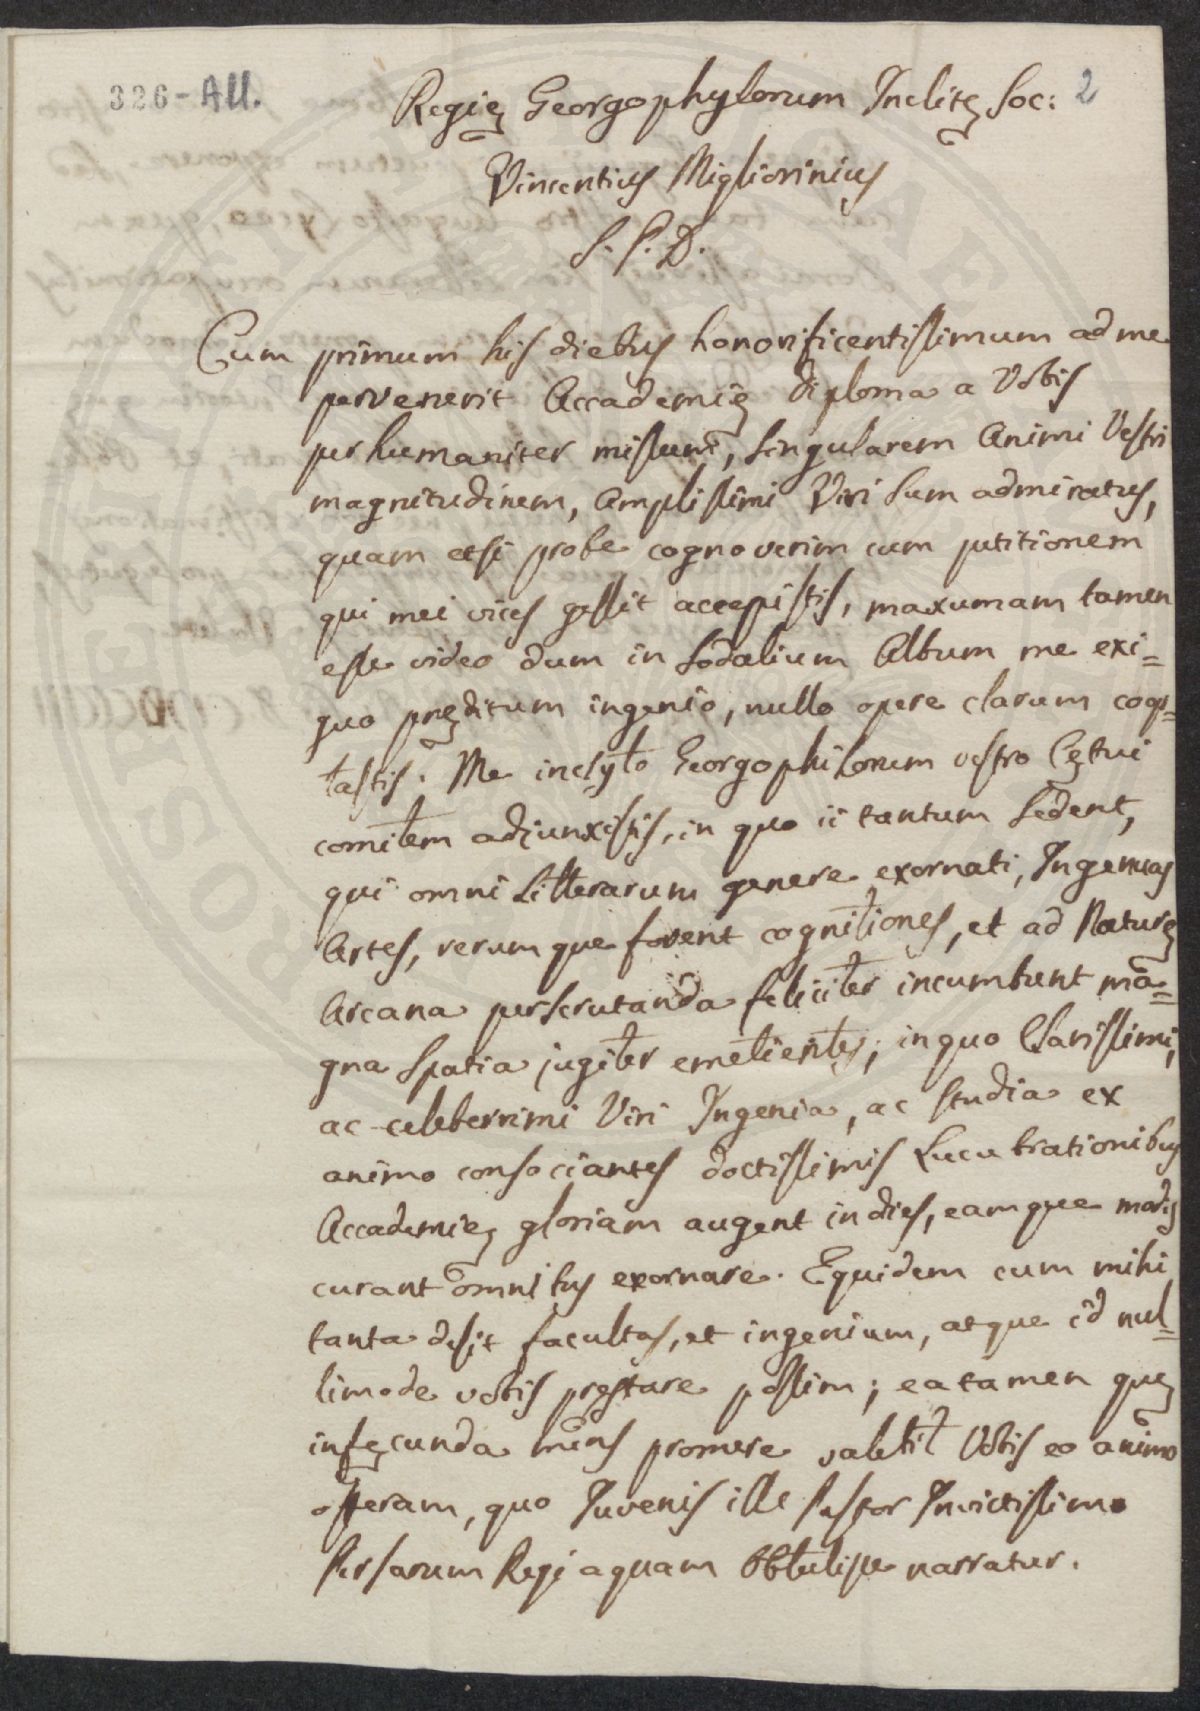 326-All.
2
Regię Georgophylorum Inclitę Soc:
Vincentius Migliorinius
S. P. D.
Cum primum his diebus honorificentissimum ad me
pervenerit Accademię diploma a Vobis
perhumaniter missum, singularem Animi Vestri
magnitudinem, Amplissimi Viri sum admiratus,
quam etsi probe cognoverim cum petitionem
qui mei vices gessit accepistis, maxumam tamen
esse video dum in Sodalium Album me exi=
guo pręditum ingenio, nullo opere clarum coop=
tastis. Me inclyto Georgophilorum vestro Cętui
comitem adjunxistis, in quo ii tantum sedent,
qui omni Litterarum genere exornati, Ingenuas
Artes, rerumque fovent cognitiones, et ad Naturę
Arcana perscrutanda feliciter incumbunt ma=
gna spatia jugiter emetientes; in quo Clarissimi,
ac celeberrimi Viri Ingenia, ac studia ex
animo consociantes doctissimis Lucubrationibus
Accademię gloriam augent in dies, eamque modis
curant omnibus exornare. Equidem cum mihi
tanta desit facultas, et ingenium, atque id nul=
limode vobis prestare possim; ea tamen quę
infęcunda mens promere valebit Vobis eo animo
offeram, quo Iuvenis ille Pastor Invictissimo
Persarum Regi aquam obtulisse narratur.